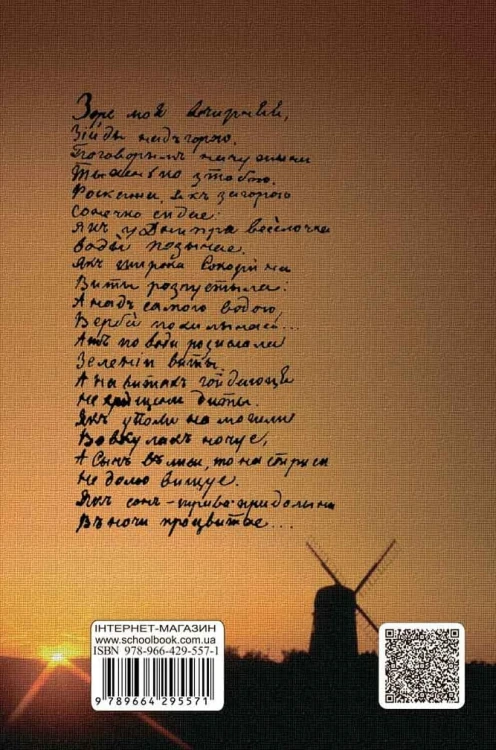 Зоре моя вечирняя,
Зійды надъ горою.
Поговорымъ
Тыхенько зтобою.
Роскажи, якъ загорою
Сонечко сидае:
Якъ уДнипра весёлочка
Воды позычае.
Якъ широка Сокорына
Виты розпустыла:
А надъ самого водою,
Верба похилылась...
Ажъ по води розислала
Зелении виты.
А на витахъ гойдаютця
Не хрищени диты.
Якъ уполи на могили
Вовкулакъ ночуе,
А Сычъ влиси, то на стриси
Не долю вищуе.
Якъ сонъ-трава придолына
Въночи процвитае...
ІНТЕРНЕТ-МАГАЗИН
www.schoolbook.com.ua
ISBN 978-966-429-557-1
9 789664 295571